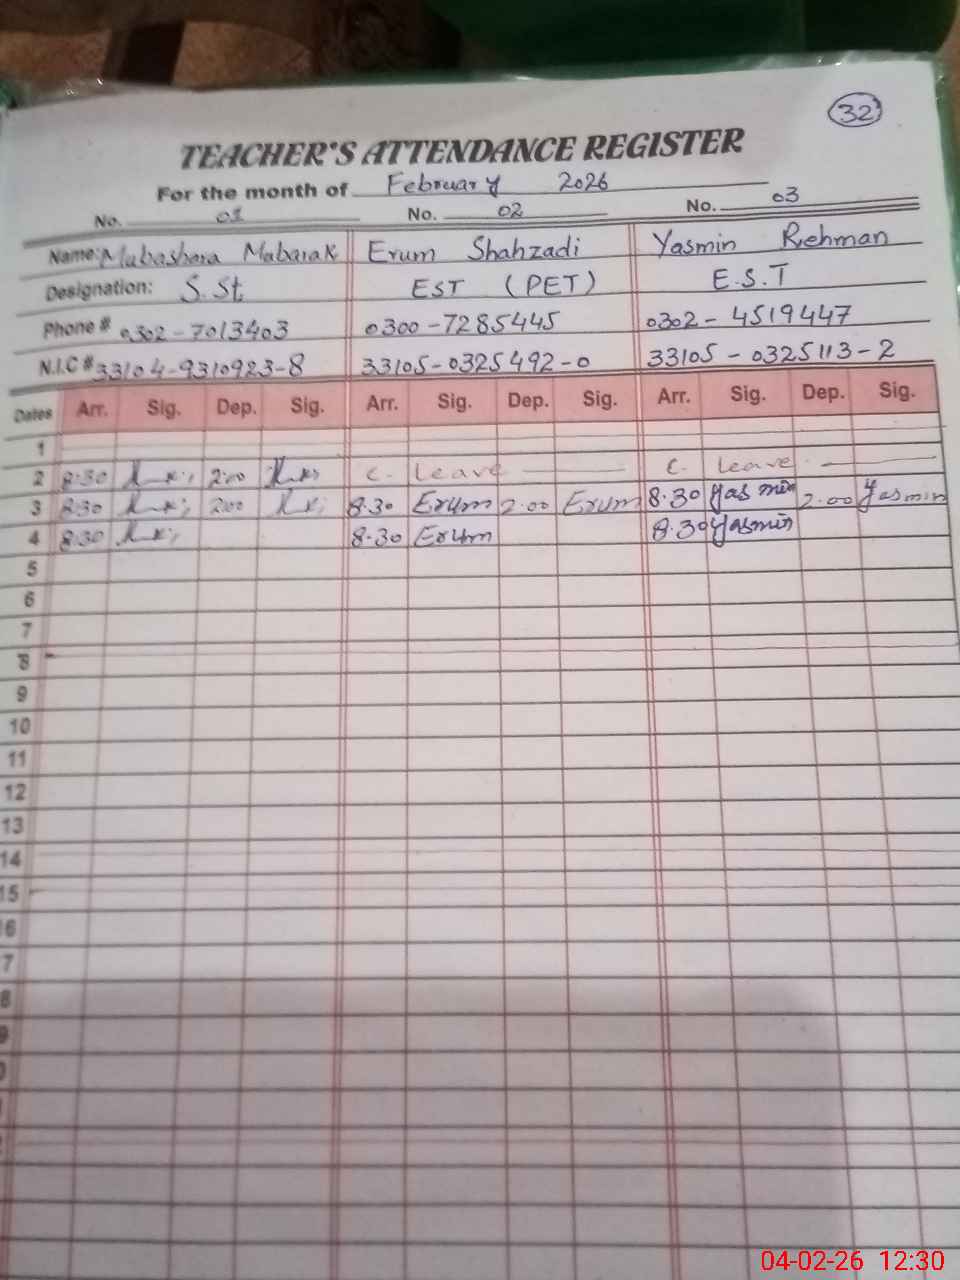 32
TEACHER'S ATTENDANCE REGISTER
For the month of February 2026
No. 01 No. 02 No. 03
Name: Mubashara Mubarak Erum Shahzadi Yasmin Rehman
Designation: S.St EST (PET) E.S.T
Phone # 0302-7013403 0300-7285445 0302-4519447
N.I.C # 33104-9310923-8 33105-0325492-0 33105-0325113-2
Dates Arr. Sig. Dep. Sig. Arr. Sig. Dep. Sig. Arr. Sig. Dep. Sig.
1
2 8:30 2:00 C. leave C. leave
3 8:30 2:00 8.30 Erum 2.00 Erum 8.30 Yasmin 2.00 Yasmin
4 8:30 8.30 Erum 8.30 Yasmin
5
6
7
8
9
10
11
12
13
14
15
6
7
8
9
04-02-26 12:30